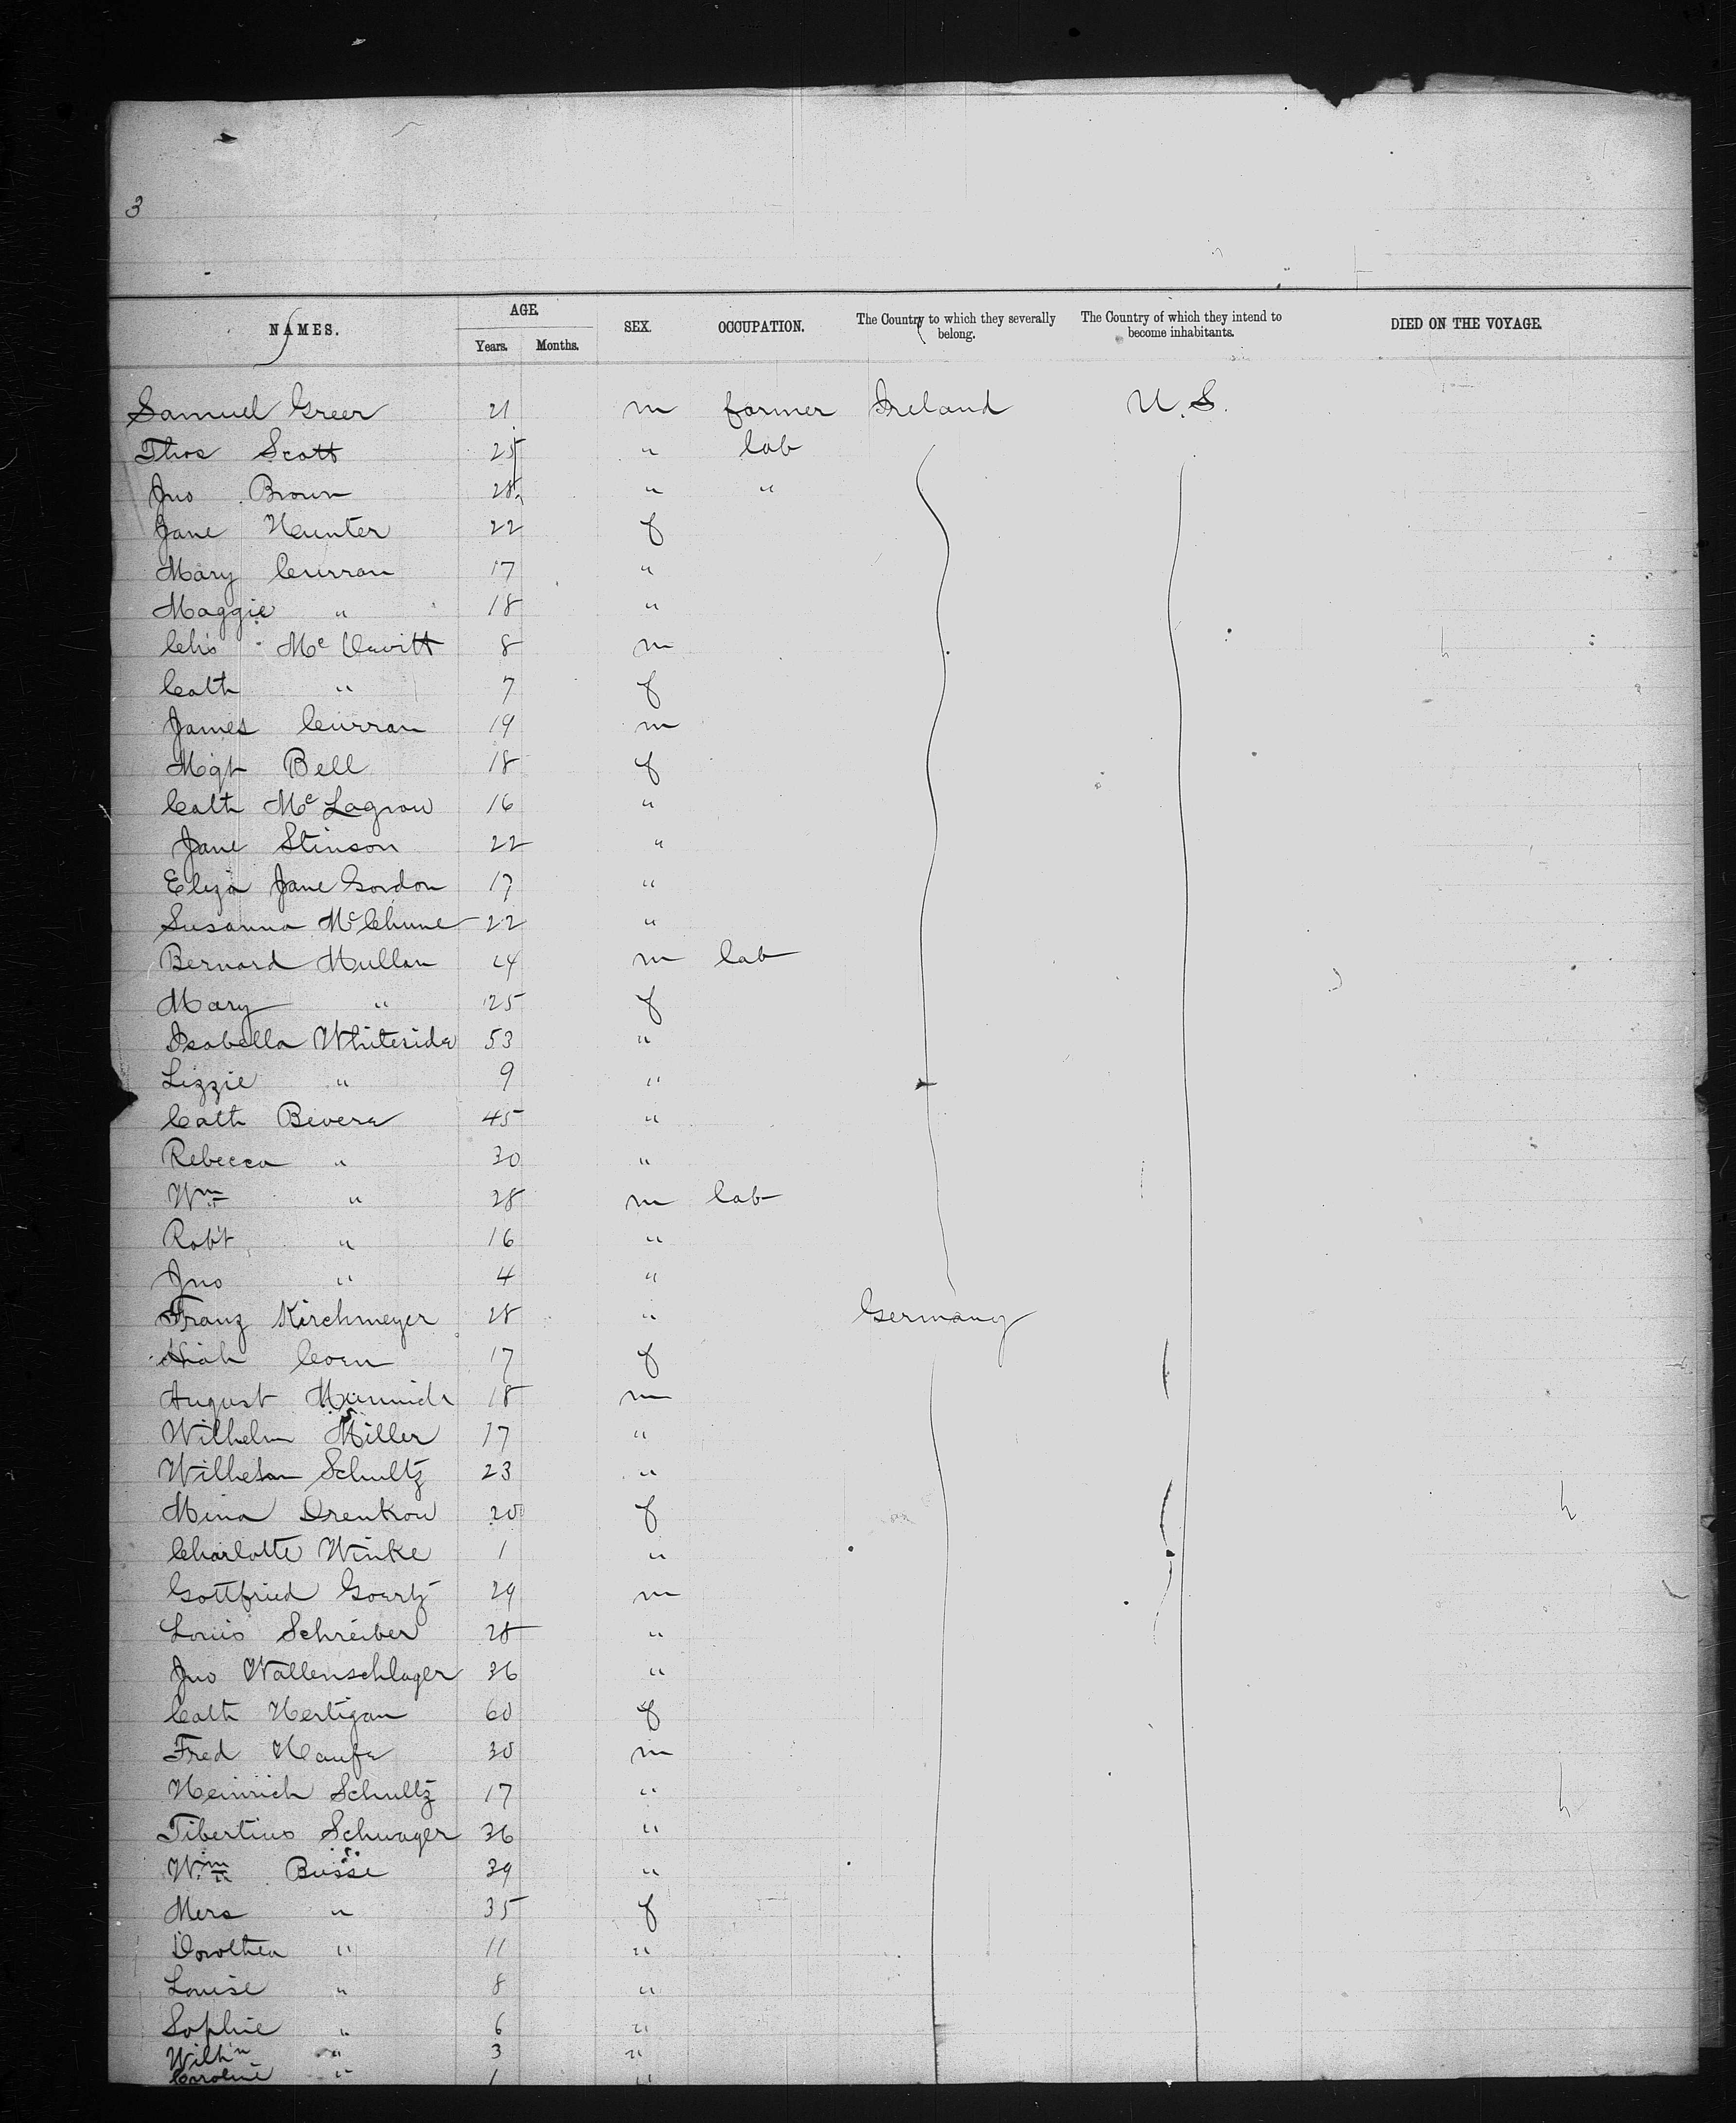 3
NAMES. AGE. Years. Months. SEX. OCCUPATION. The Country to which they severally belong. The Country of which they intend to become inhabitants. DIED ON THE VOYAGE.
Samuel Greer 21 m farmer Ireland U.S.
Thos Scott 25 " lab
Jno Brown 28 " "
Jane Hunter 22 f
Mary Curran 17 "
Maggie " 18 "
Chs McDevitt 8 m
Cath " 7 f
James Curran 19 m
Mgt Bell 18 f
Cath Mc 16 "
Jane Stinson 22 "
Eliza Jane Gordon 17 "
Susanna 22 "
Bernard Mullan 24 m lab
Mary " 25 f
Isabella Whiteside 53 "
Lizzie " 9 "
Cath 45 "
Rebecca " 30 "
Wm " 28 m lab
Robt " 16 "
Jno " 4 "
Franz Kirchmeyer 28 " Germany
17 f
August 18 m
Wilhelm Miller 17 "
Wilhelm Schultz 23 "
Mina Drenkow 20 f
Charlotte Winke 1 "
Gottfried Goertz 29 m
Louis Schreiber 28 "
Jno Wallenschlager 36 "
Cath Hertigan 60 f
Fred Haufe 30 m
Heinrich Schultz 17 "
Tibertius Schwager 36 "
Wm Busse 39 "
Mers " 35 f
Dorothea " 11 "
Louise " 8 "
Sophie " 6 "
Wilhm " 3 "
Caroline " 1 "